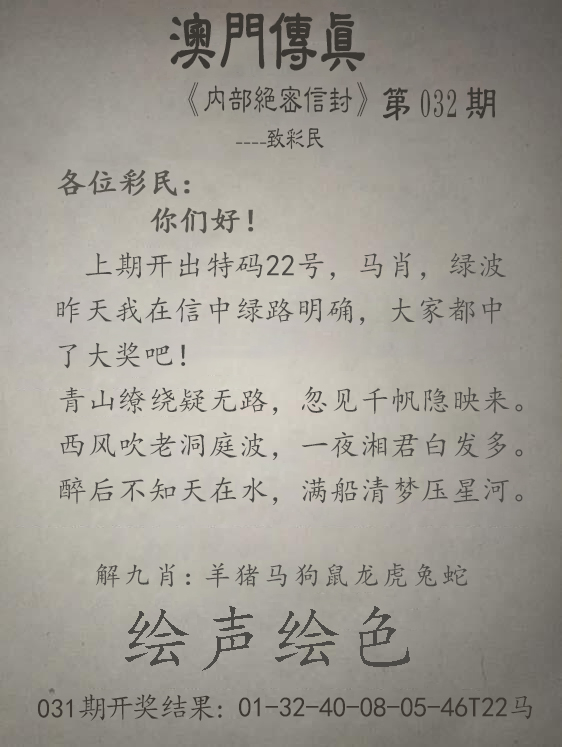 澳門傳眞
《内部絕密信封》第032期
----致彩民
各位彩民：
你们好！
上期开出特码22号，马肖，绿波
昨天我在信中绿路明确，大家都中
了大奖吧！
青山缭绕疑无路，忽见千帆隐映来。
西风吹老洞庭波，一夜湘君白发多。
醉后不知天在水，满船清梦压星河。
解九肖：羊猪马狗鼠龙虎兔蛇
绘声绘色
031期开奖结果：01-32-40-08-05-46T22马